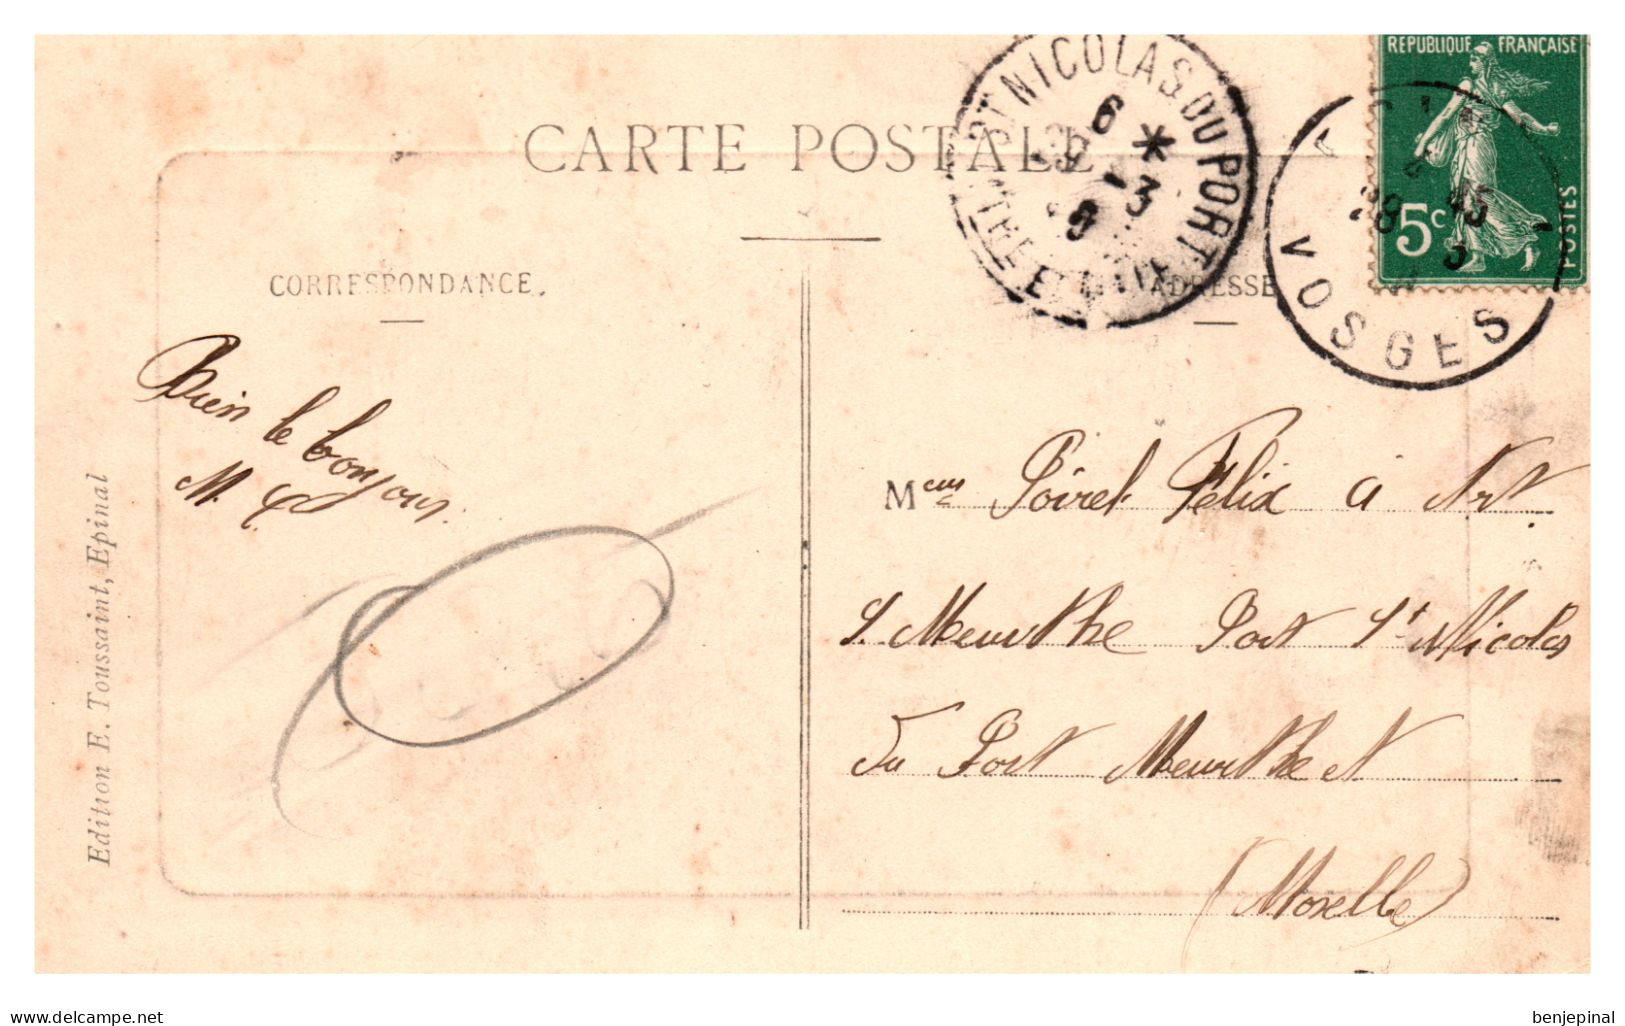 CARTE POSTALE
CORRESPONDANCE.
ADRESSE
RÉPUBLIQUE FRANÇAISE
5c
POSTES
ST NICOLAS DU PORT
6 *
-3
VOSGES
Bien le bonjour
M.
Meur Poirel Félix à Art
s. Meurthe Port St Nicolas
Du Port Meurthe et
(Moselle)
Edition E. Toussaint, Epinal
www.delcampe.net
benjepinal